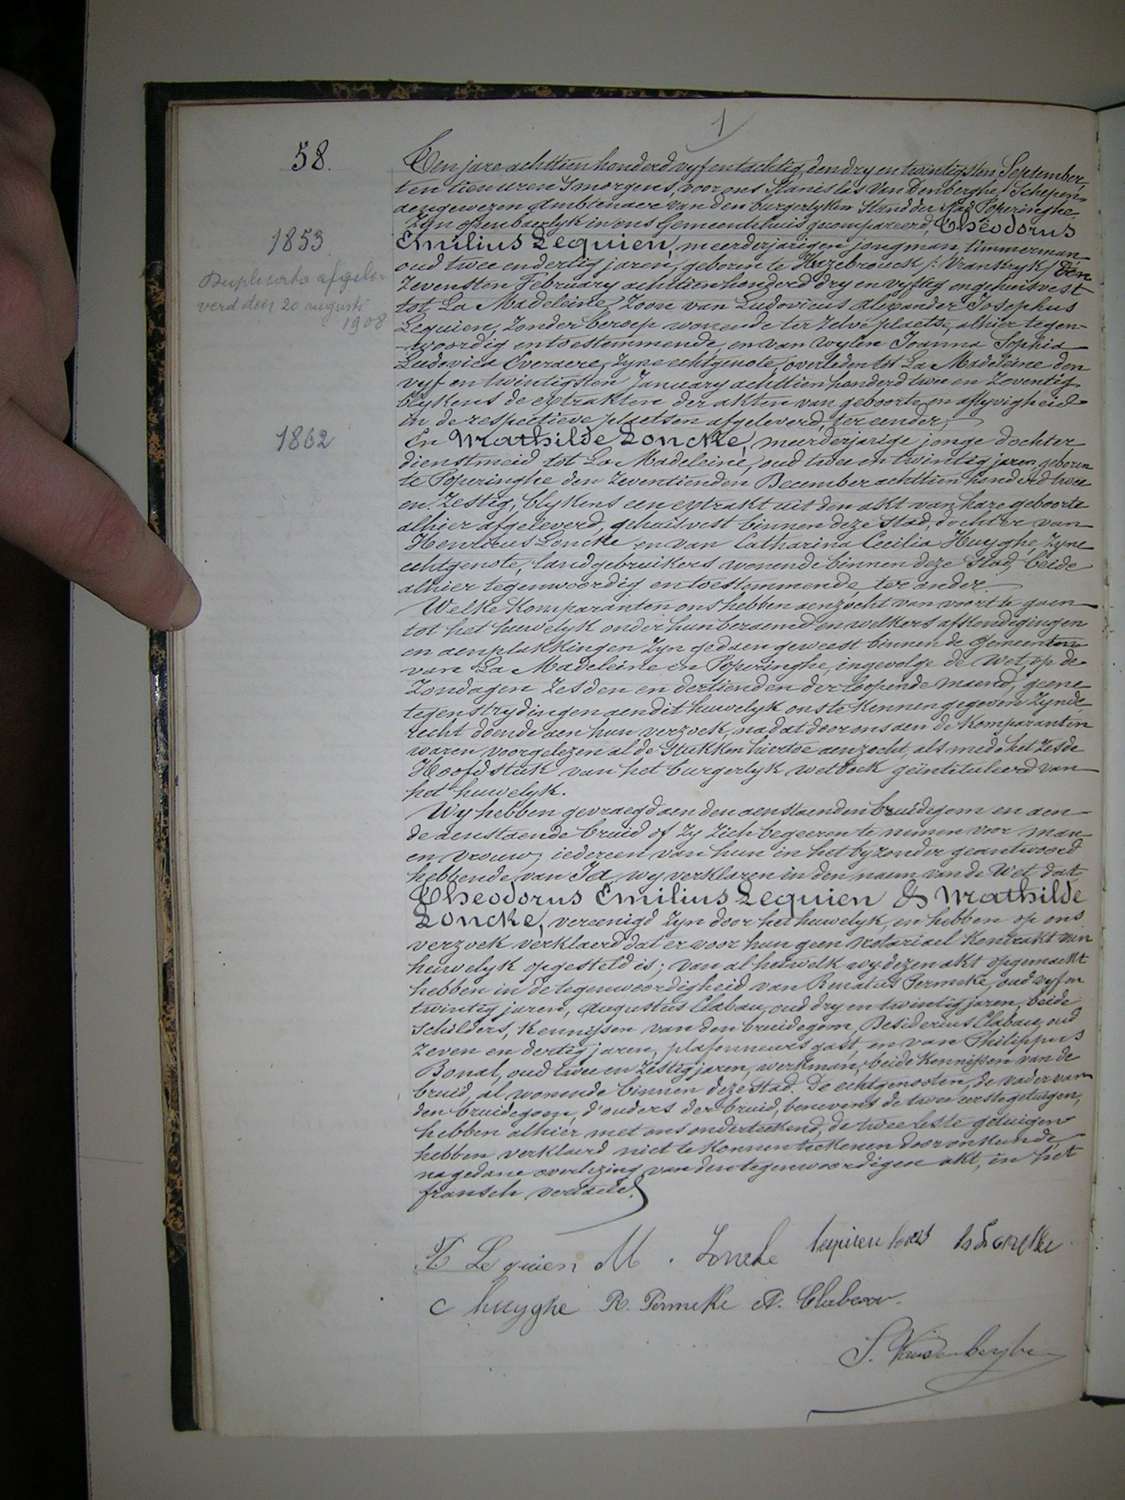 1
58.
Ten jare achttien honderd vyfentachtig, den dry en twintigsten September,
ten tien uren 's morgens, voor ons Stanislas Van Denberghe, Schepen
aengewezen Ambtenaer van den burgerlyken Stand der Stad Poperinghe
Zyn openbaerlyk in ons Gemeentehuis gecompareerd, Theodorus
1853
Emilius Lequien, meerderjarigen jongman, timmerman
oud twee en dertig jaren, geboren te Hazebrouck /: Vrankryk / den
Duplicata afgele-
zevensten February achttien honderd dry en vyftig ongehuisvest
verd den 20 augusti
tot La Madeleine, Zoon van Ludovicus Alexander Josephus
1908
Lequien, zonder beroep wonende ter zelve plaets, alhier tegen-
woordig en toestemmende, en van wylen Joanna Sophia
Ludovica Everaere, zyne echtgenote, overleden tot La Madeleine den
vyf en twintigsten January achttien honderd twee en zeventig
blykens de extrakten der akten van geboorte en aflyvigheid
in de respectieve plaetsen afgeleverd, ter eender,
1862
En Mathilde Loncke, meerderjarige jonge dochter
dienstmeid tot La Madeleine, oud twee en twintig jaren, geboren
te Poperinghe den zeventienden December achttien honderd twee
en zestig, blykens een extrakt uit den akt van hare geboorte
alhier afgeleverd, gehuisvest binnen deze stad, dochter van
Henricus Loncke en van Catharina Cecilia Huyghe, zyne
echtgenote, landgebruikers wonende binnen deze Stad, beide
alhier tegenwoordig en toestemmende, ter ander.
Welke komparanten ons hebben aenzocht van voort te gaen
tot het huwelyk onder hun beraemd en welkers afkondigingen
en aenplakkingen zyn gedaen geweest binnen de Gemeenten
van La Madeleine en Poperinghe, ingevolge de Wet, op de
Zondagen zesden en dertienden der loopende maend, geene
tegenstrydingen aen dit huwelyk ons te kennen gegeven zynde
recht doende aen hun verzoek, na dat door ons aen de komparanten
waren voorgelezen al de Stukken hiertoe aenzocht, als mede het zesde
Hoofdstuk van het burgerlyk wetboek geïntituleerd van
het huwelyk.
Wy hebben gevraegd aen den aenstaenden bruidegom en aen
de aenstaende bruid of zy zich begeeren te nemen voor man
en vrouw, iedereen van hun in het byzonder geantwoord
hebbende van Ja, wy verklaren in den naem van de Wet, dat
Theodorus Emilius Lequien & Mathilde
Loncke, vereenigd zyn door het huwelyk, en hebben op ons
verzoek verklaerd dat er voor hun geen notariael kontrakt van
huwelyk opgesteld is; van al hetwelk wy dezen akt opgemaekt
hebben in de tegenwoordigheid van Renatus Permeke, oud vyf en
twintig jaren, Augustus Clabau, oud dry en twintig jaren, beide
schilders, kennissen van den bruidegom, Desiderius Clabau, oud
zeven en dertig jaren, plafonneurs gast, en van Philippus
Bonat, oud twee en zestig jaren, werkman, beide kennissen van de
bruid, al wonende binnen deze stad. De echtgenooten, de vader van
den bruidegom, d'ouders der bruid, benevens de twee eerste getuigen,
hebben alhier met ons onderteekend, de twee leste getuigen
hebben verklaerd niet te konnen teekenen door onkunde
na gedane overlezing van den tegenwoordigen akt, in het
fransch vertaeld.
T Lequien M. Loncke lequien louis h Loncke
C huyghe R. Permeke A. Clabau.
S. Vandenberghe